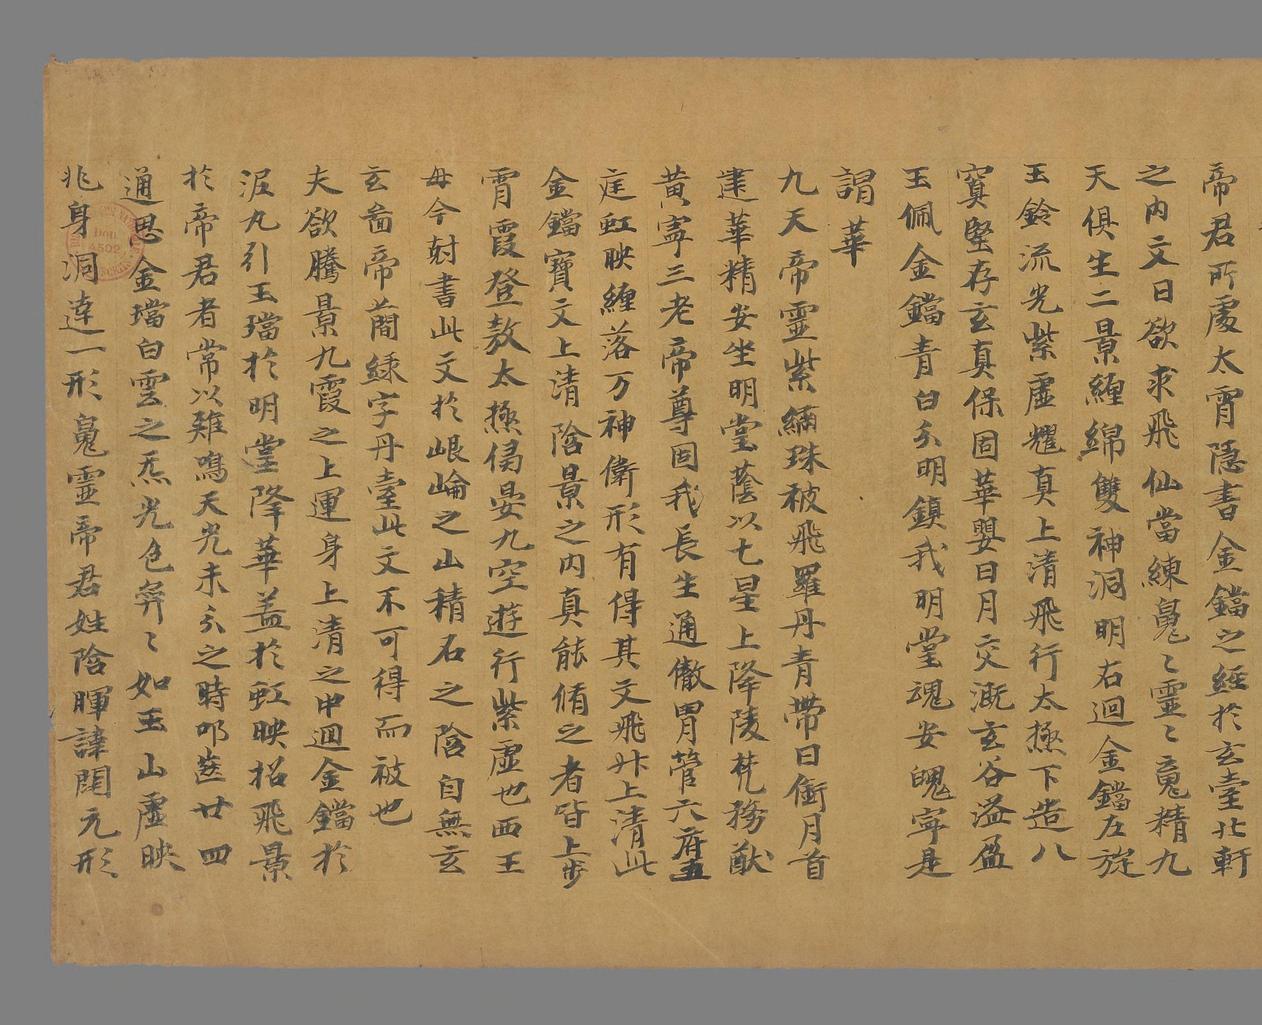 帝君所處太霄隱書金鐺之經於玄臺北軒
之内文曰欲求飛仙當練䰟〻靈〻䰟精九
天俱生二景纏綿雙神洞明右迴金鐺左旋
玉鈴流光紫虛耀真上清飛行太極下造八
寘堅存玄真保固華嬰日月交溉玄谷溢盈
玉佩金鐺青白分明鎮我明堂魂安魄寧是
謂華
九天帝靈紫繡珠袚飛羅丹青帶日銜月首
建華精安坐明堂蔭以七星上降陵梵務猷
黃寧三老帝尊固我長生通徹胃管六府五
庭虹映纏落万神衛形有得其文飛升上清此
金鐺寶文上清陰景之内真能脩之者皆上步
霄霞登敖太極偈晏九空遊行紫虛也西王
母今封書此文於崐崘之山積石之陰自無玄
玄啚帝蕳綠字丹臺此文不可得而被也
夫欲騰景九霞之上運身上清之中迴金鐺於
泥丸引玉璫於明堂降華盖於虹映招飛景
於帝君者常以雞鳴天光未分之時叩齒廿四
通思金璫白雲之炁光色竒〻如玉山虛映
兆身洞達一形䰟靈帝君姓陰暉諱閏元形